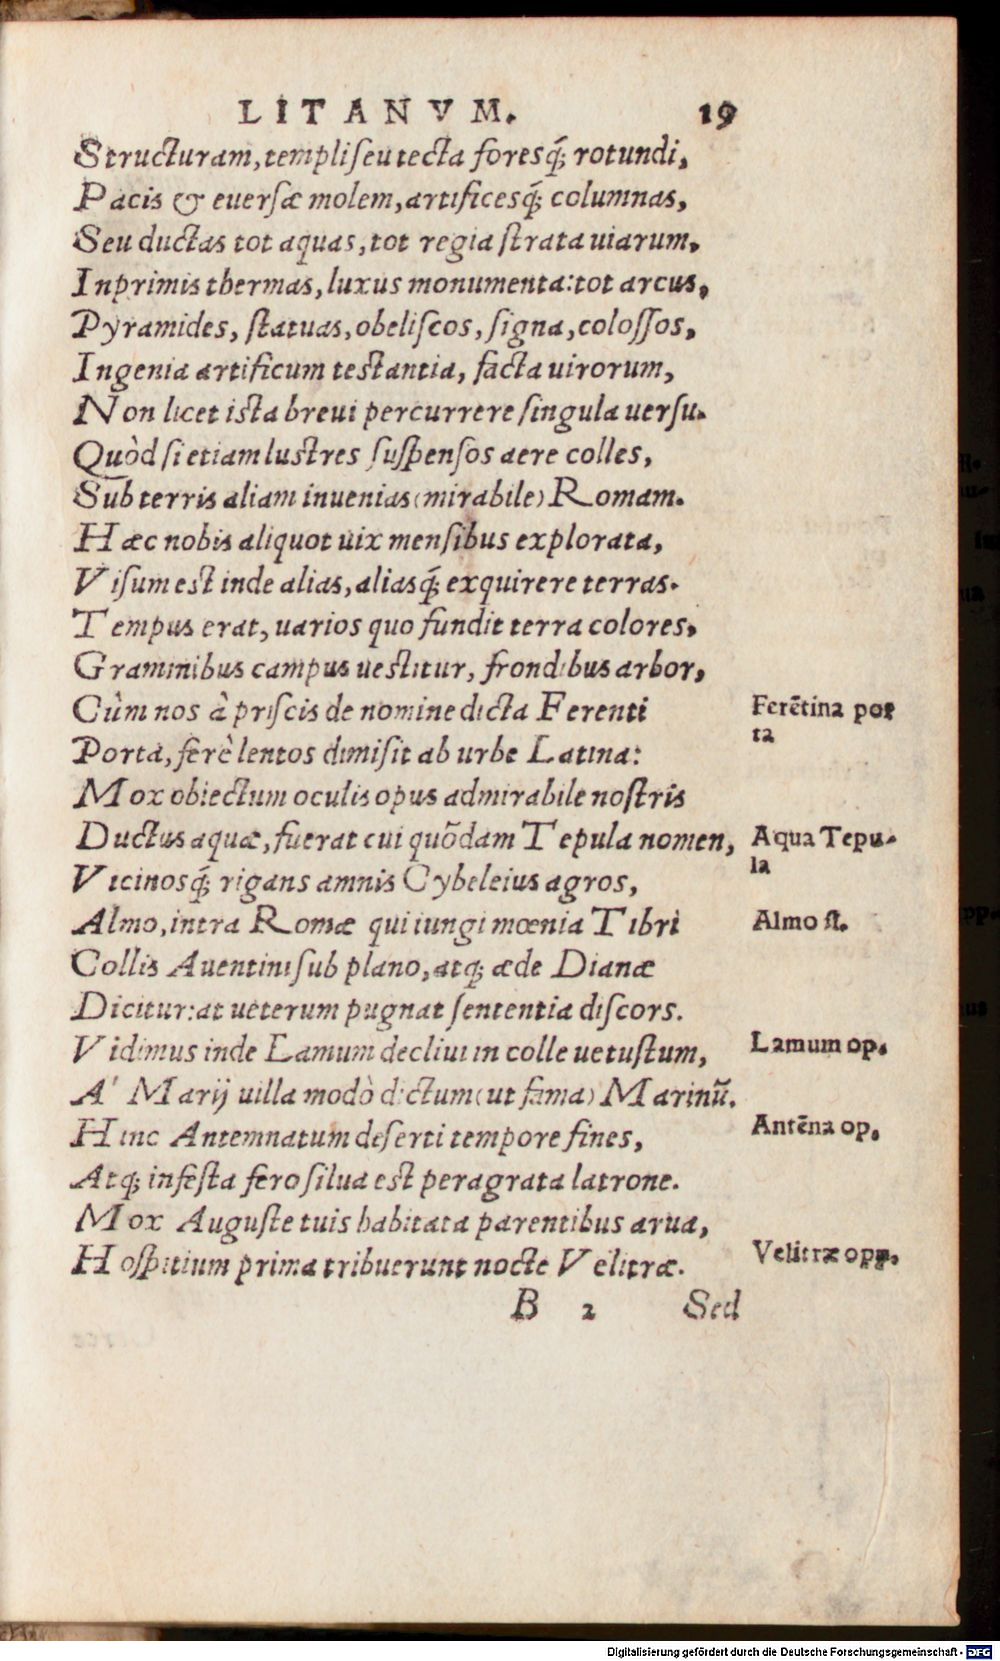 LITANVM. 19
Structuram, templi ſeu tecta foresq́; rotundi,
Pacis & euerſæ molem, artificesq́; columnas,
Seu ductas tot aquas, tot regia ſtrata uiarum,
Inprimis thermas, luxus monumenta: tot arcus,
Pyramides, ſtatuas, obeliſcos, ſigna, coloſſos,
Ingenia artificum testantia, facta uirorum,
Non licet ista breui percurrere ſingula uerſu.
Quòd ſi etiam lustres ſuſpenſos aere colles,
Sub terris aliam inuenias (mirabile) Romam.
Hæc nobis aliquot uix menſibus explorata,
Viſum est inde alias, aliasq́; exquirere terras.
Tempus erat, uarios quo fundit terra colores,
Graminibus campus uestitur, frondibus arbor,
Cùm nos à priſcis de nomine dicta Ferenti
Porta, ferè lentos dimiſit ab urbe Latina:
Mox obiectum oculis opus admirabile noſtris
Ductus aquæ, fuerat cui quõdam Tepula nomen,
Vicinosq́; rigans amnis Cybeleius agros,
Almo, intra Romæ qui iungi mœnia Tibri
Collis Auentini ſub plano, atq; æde Dianæ
Dicitur: at ueterum pugnat ſententia diſcors.
Vidimus inde Lamum decliui in colle uetuſtum,
A' Marij uilla modò dictum (ut fama) Marinũ.
Hinc Antemnatum deſerti tempore fines,
Atq; infeſta fero ſilua est peragrata latrone.
Mox Auguſte tuis habitata parentibus arua,
Hoſpitium prima tribuerunt nocte Velitræ.
B 2 Sed
Ferẽtina por
ta
Aqua Tepu-
la
Almo fl.
Lamum op.
Antẽna op.
Velitræ opp.
Digitalisierung gefördert durch die Deutsche Forschungsgemeinschaft - DFG